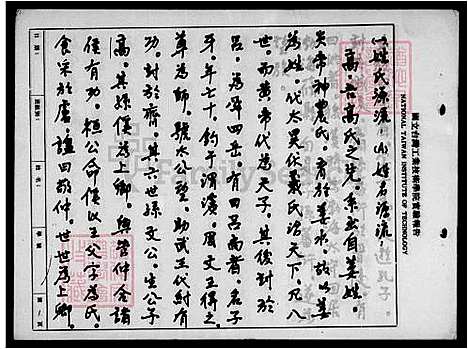 國立台灣工業技術學院實驗報告
NATIONAL TAIWAN INSTITUTE OF TECHNOLOGY
姓氏源流 姓名源流
高、呂高氏之先、系出自姜姓、
炎帝神農氏、育於姜水、故以姜
為姓、代太昊伏羲氏治天下、凡八
世、而黃帝代為天子、其後封於
呂、為四岳、有曰呂尚者、名子
牙、年七十、釣于渭濱、周文王得之、
尊為師、號太公望、助武王伐紂有
功、封於齊、其六世孫文公、生公子
高、其孫傒為上卿、與管仲合諸
侯有功、桓公命傒以王父字為氏、
食采於盧、謚曰敬仲、世世為上卿、